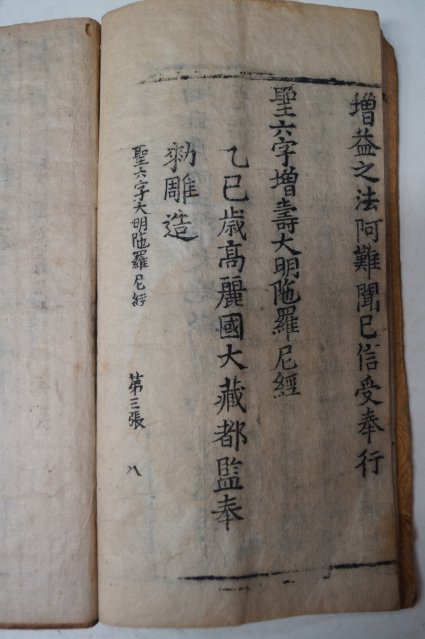 增益之法阿難聞已信受奉行
聖六字增壽大明陁羅尼經
乙巳歲高麗國大藏都監奉
勅雕造
聖六字大明陁羅尼經 第三張 八